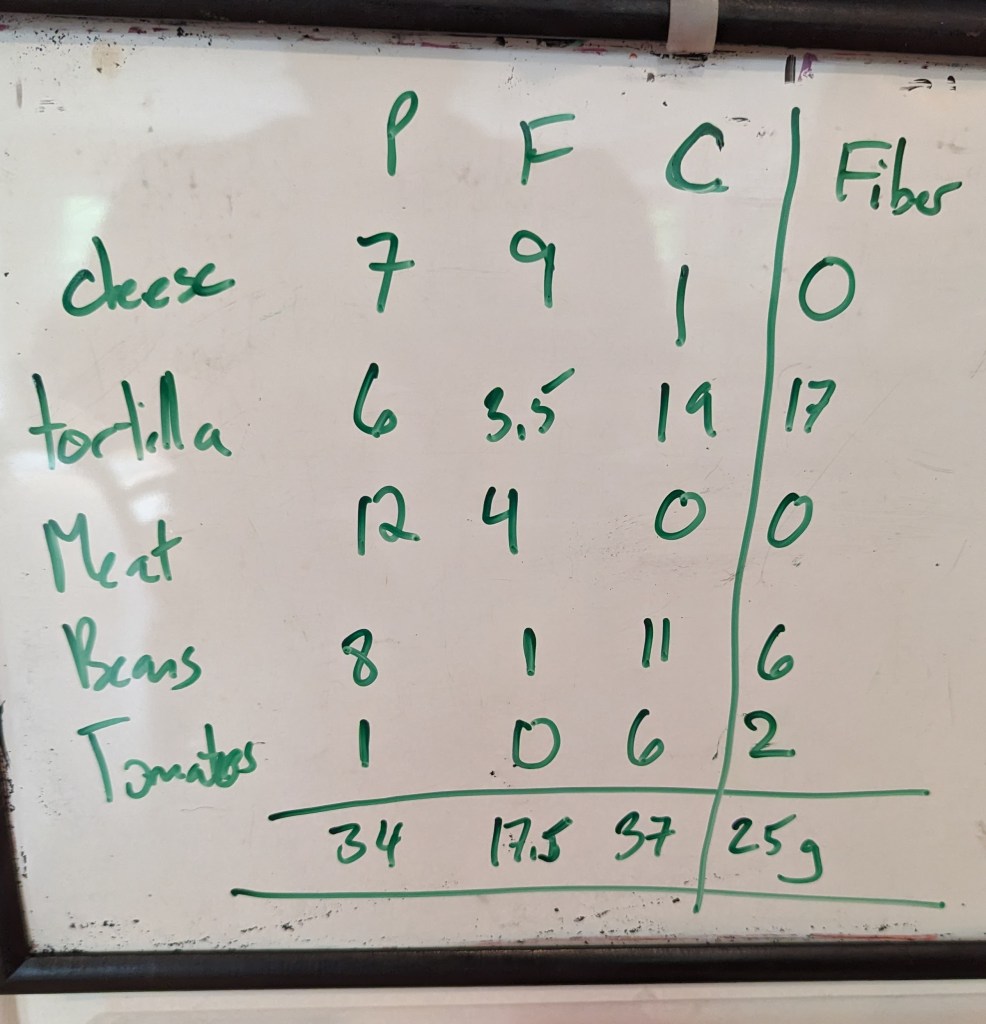 P F C Fiber
cheese 7 9 1 0
tortilla 6 3.5 19 17
Meat 12 4 0 0
Beans 8 1 11 6
Tomatoes 1 0 6 2
34 17.5 37 25g